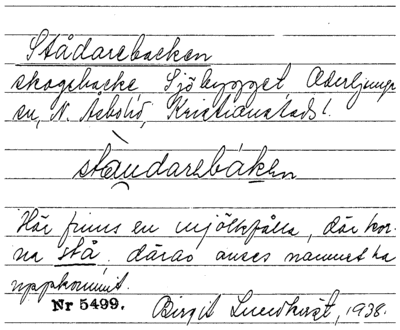 Stådarebacken
skogsbacke, Sjöbygget, Öderljunga
sn, N. Åsbo hd, Kristianstads l.
ståndarebáken
Här finns en mjölkfålla, där kor-
na stå, därav anses namnet ha
uppkommit.
Nr 5499. Birgit Lundkvist, 1938.